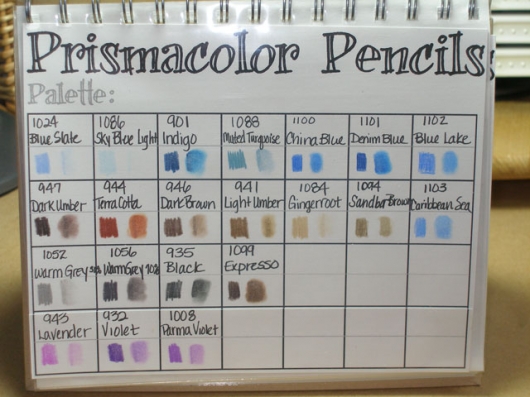 Prismacolor Pencils
Palette:
1024 1086 901 1088 1100 1101 1102
Blue Slate Sky Blue Light Indigo Muted Turquoise China Blue Denim Blue Blue Lake
947 944 946 941 1084 1094 1103
Dark Umber Terra Cotta Dark Brown Light Umber Gingerroot Sandbar Brown Caribbean Sea
1052 1056 935 1099
Warm Grey Warm Grey Black Espresso
943 932 1008
Lavender Violet Parma Violet